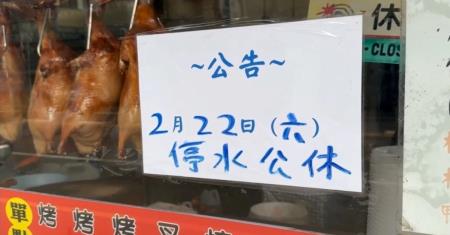 ~公告~
2月22日(六)
停水公休
休
-CLOS
單點
烤烤烤叉燒